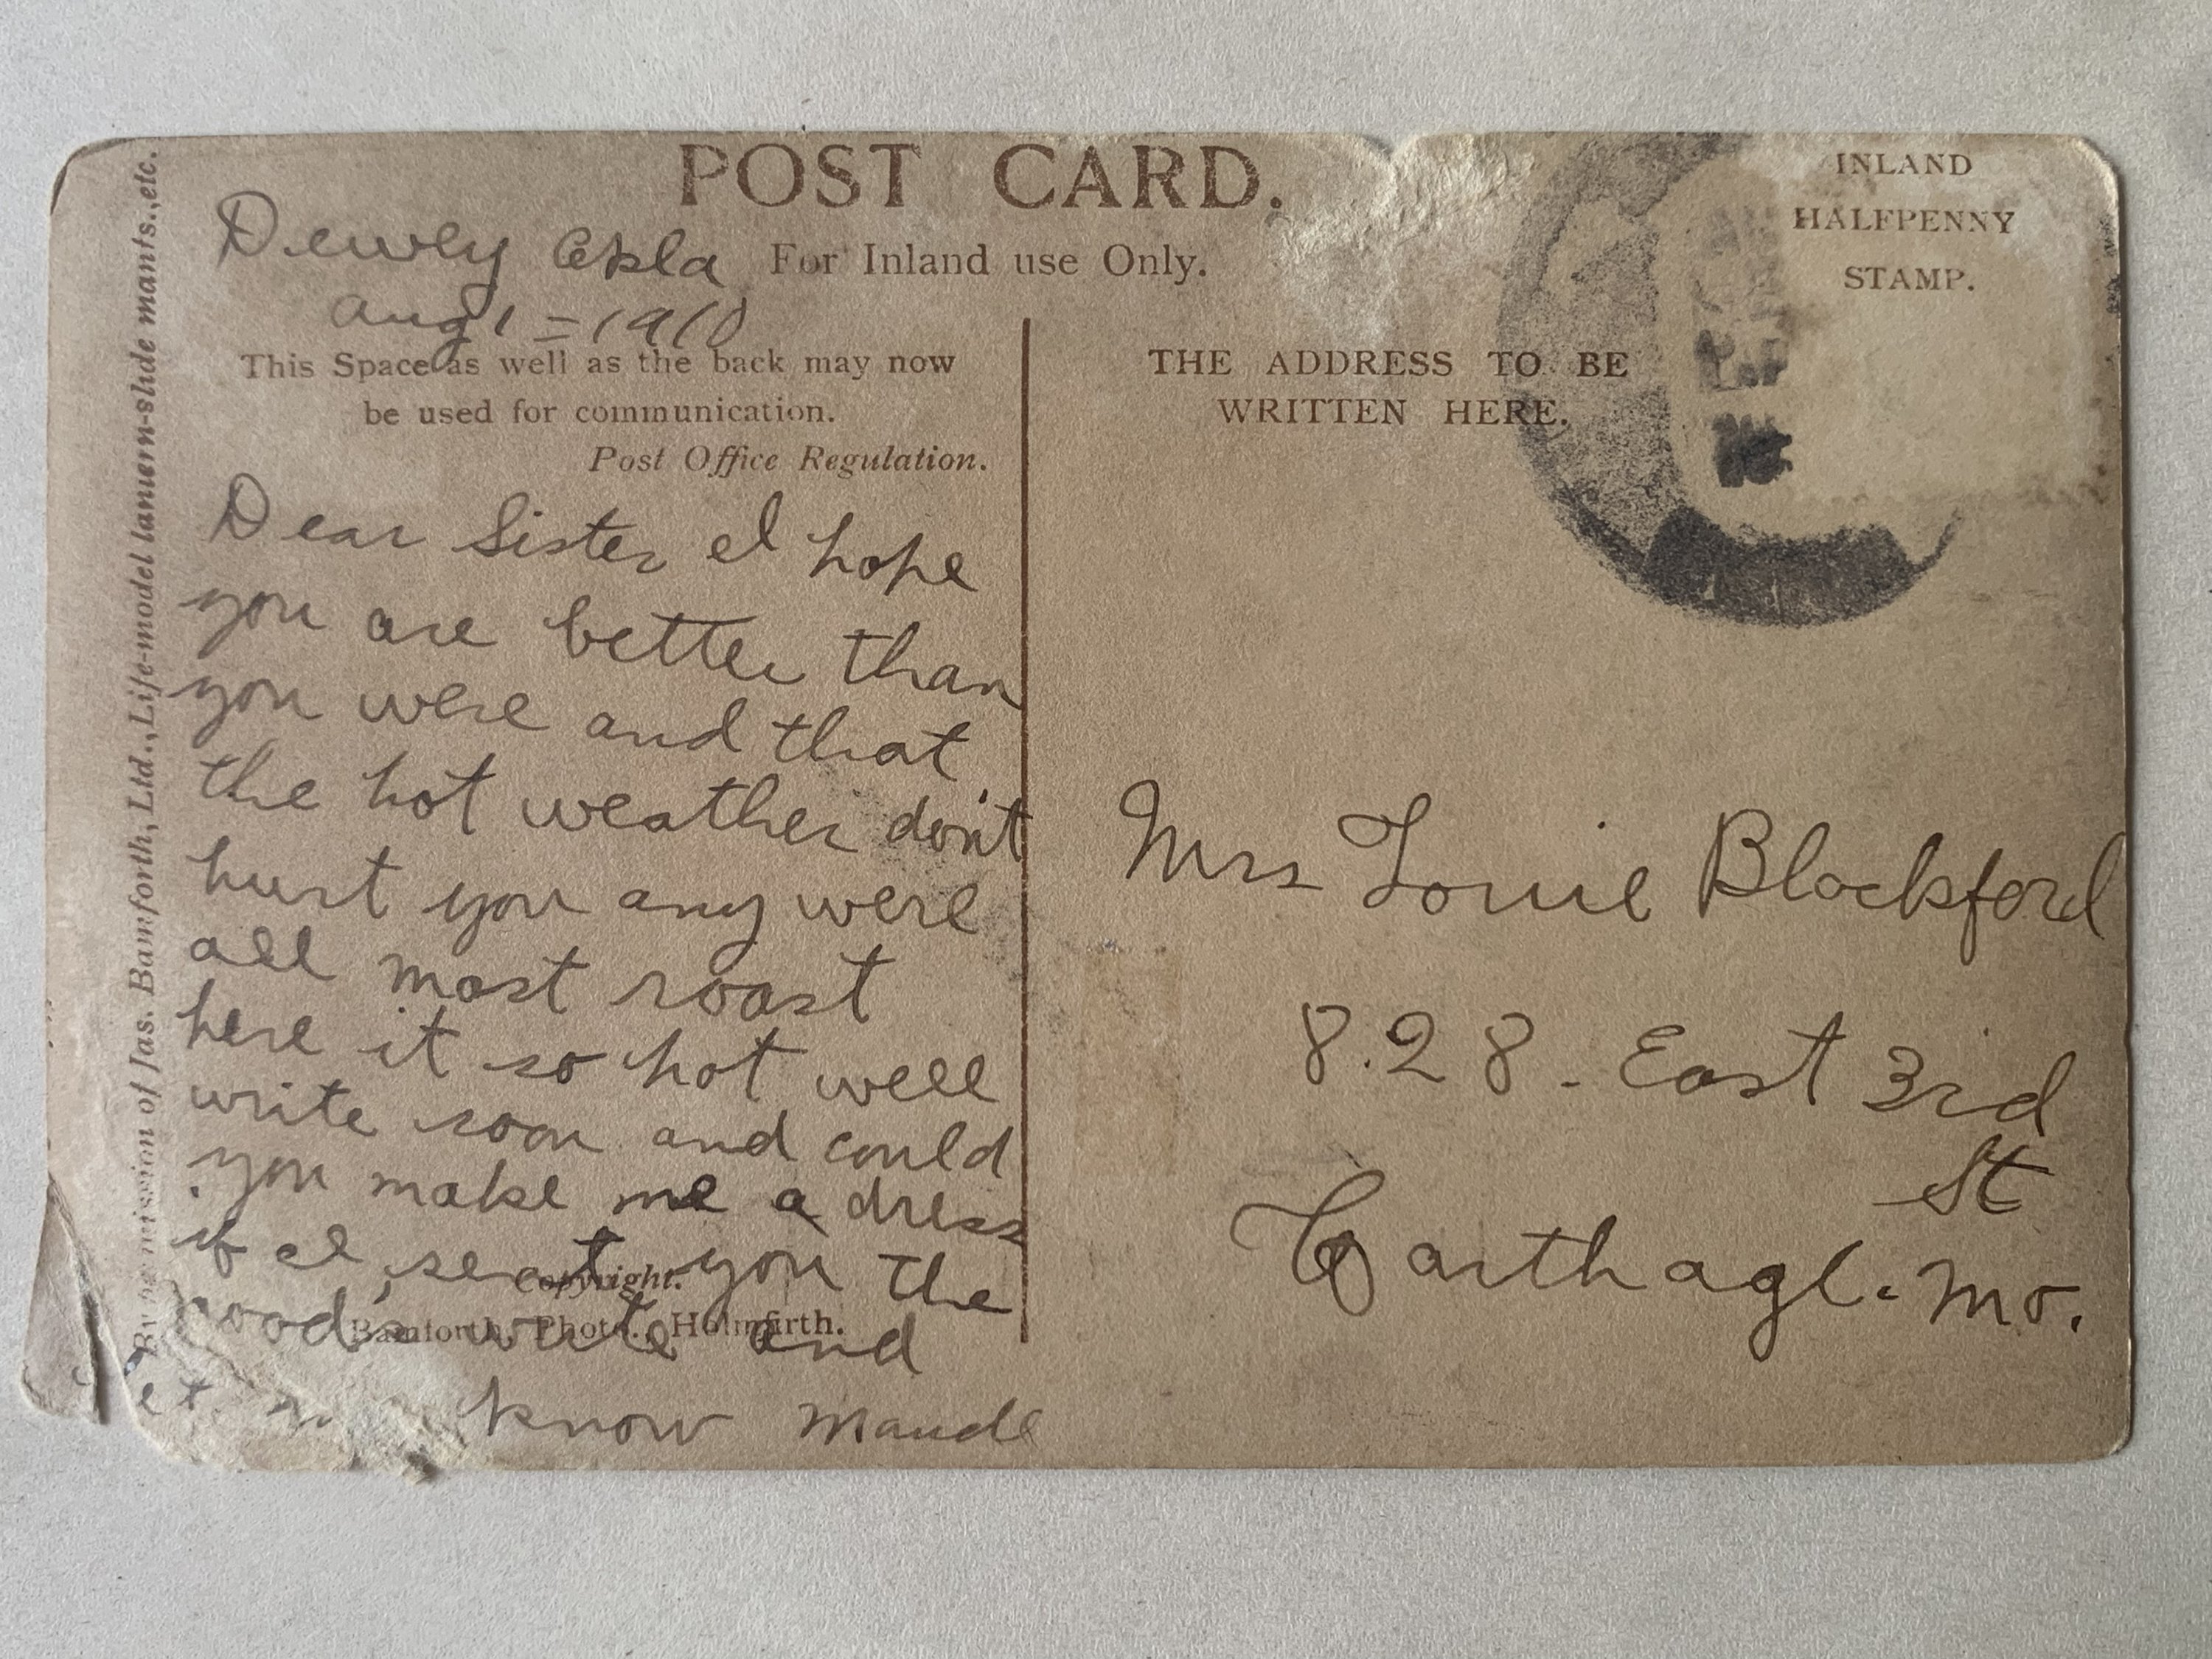 POST CARD.
Dewley Okla
For Inland use Only.
Aug 1 = 1910
This Space as well as the back may now
be used for communication.
Post Office Regulation.
Dear Sister I hope
you are better than
you were and that
the hot weather don't
hurt you any were
all most roast
here it so hot well
write soon and could
you make me a dress
if I sent you the
goods write and
let me know Maude
Copyright.
Bamforth, Photo., Holmfirth.
By permission of Jas. Bamforth, Ltd., Life-model lantern-slide mants., etc.
INLAND
HALFPENNY
STAMP.
THE ADDRESS TO BE
WRITTEN HERE.
Mrs Louie Blackford
8.28 - East 3rd
St
Carthage. Mo.